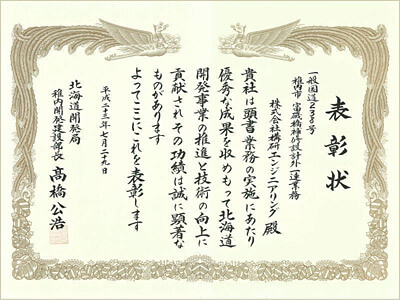 表彰状
一般国道238号
稚内市 富磯橋補修設計外一連業務
株式会社構研エンジニアリング 殿
貴社は頭書業務の実施にあたり
優秀な成果を収めもって北海道
開発事業の推進と技術の向上に
貢献されその功績は誠に顕著な
ものがあります
よってここにこれを表彰します
平成二十三年七月二十九日
北海道開発局
稚内開発建設部長 髙橋公浩